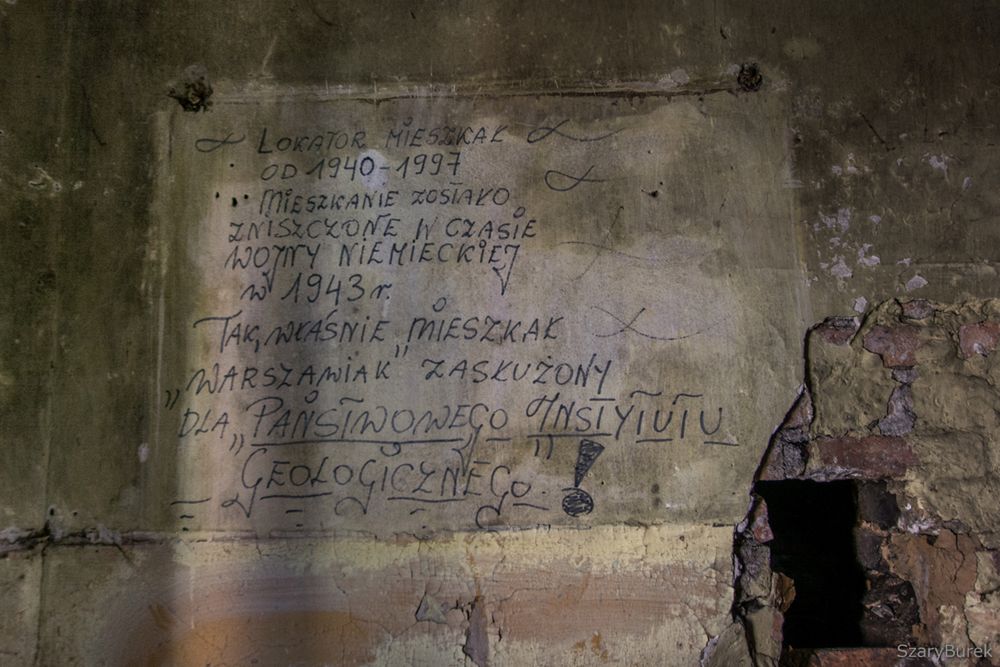 LOKATOR MIESZKAŁ
OD 1940-1997
MIESZKANIE ZOSTAŁO
ZNISZCZONE W CZASIE
WOJNY NIEMIECKIEJ
w 1943 r.
TAK, WŁAŚNIE „MIESZKAŁ
„WARSZAWIAK" ZASŁUŻONY
DLA „PAŃSTWOWEGO INSTYTUTU
GEOLOGICZNEGO" !
SzaryBurek